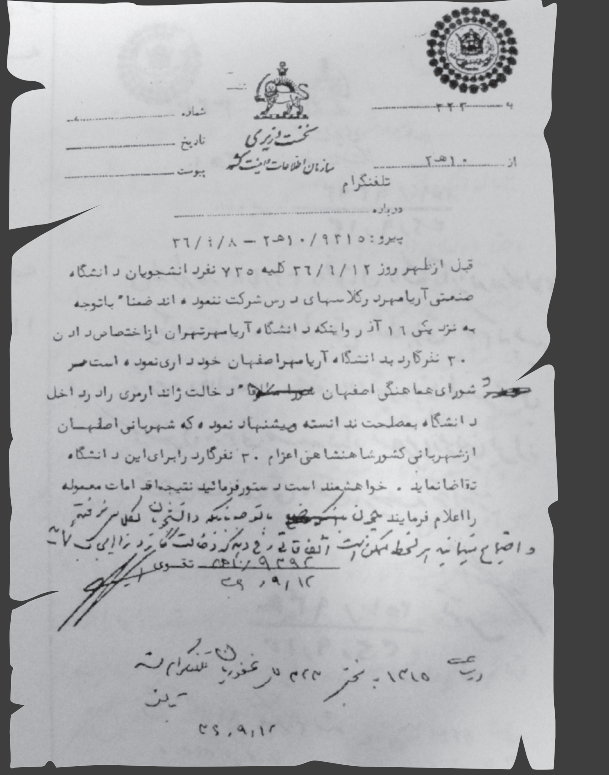 به ۳۲۳
شماره
نخست وزیری
تاریخ
سازمان اطلاعات و امنیت کشور
از ۱۰هـ۲
پیوست
تلفنگرام
درباره
پیرو: ۹۳۱۵/ ۱۰هـ۲ — ۳۶/۹/۸
قبل ازظهر روز ۳۶/۹/۱۲ کلیه ۷۳۵ نفرد انشجویان د انشگاه
صنعتی آریامهرد رکلاسهای د رس شرکت ننموده اند ضمناً باتوجه
به نزد یکی ۱۶ آذر واینکه د انشگاه آریامهرتهران ازاختصاص د ادن
۳۰ نفرگارد بد انشگاه آریامهراصفهان خود د اری نموده است
شورای هماهنگی اصفهان د خالت ژاند ارمری راد رد اخل
د انشگاه بمصلحت ند انسته وپیشنهاد نموده که شهربانی اصفهـان
ازشهربانی کشورشاهنشاهی اعزام ۳۰ نفرگارد رابرای این د انشگاه
تقاضانماید . خواهشمند است د ستورفرمائید نتیجه اقد امات معموله
رااعلام فرمایند
و اجتماع هر لحظه ممکن است دخالت گارد
تقوی
۳۶/۹/۱۲
۱۳۱۵ به ۳۲۳ تلفنگرام
۳۶/۹/۱۲